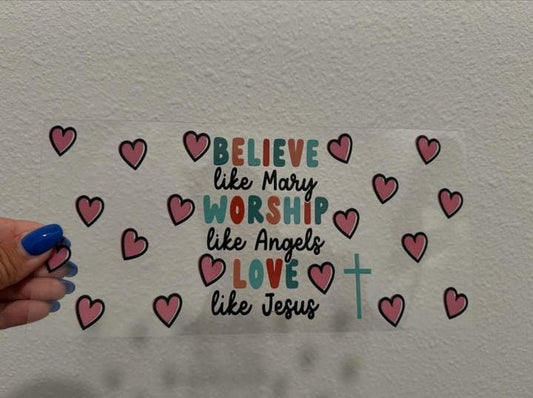 BELIEVE
like Mary
WORSHIP
like Angels
LOVE
like Jesus